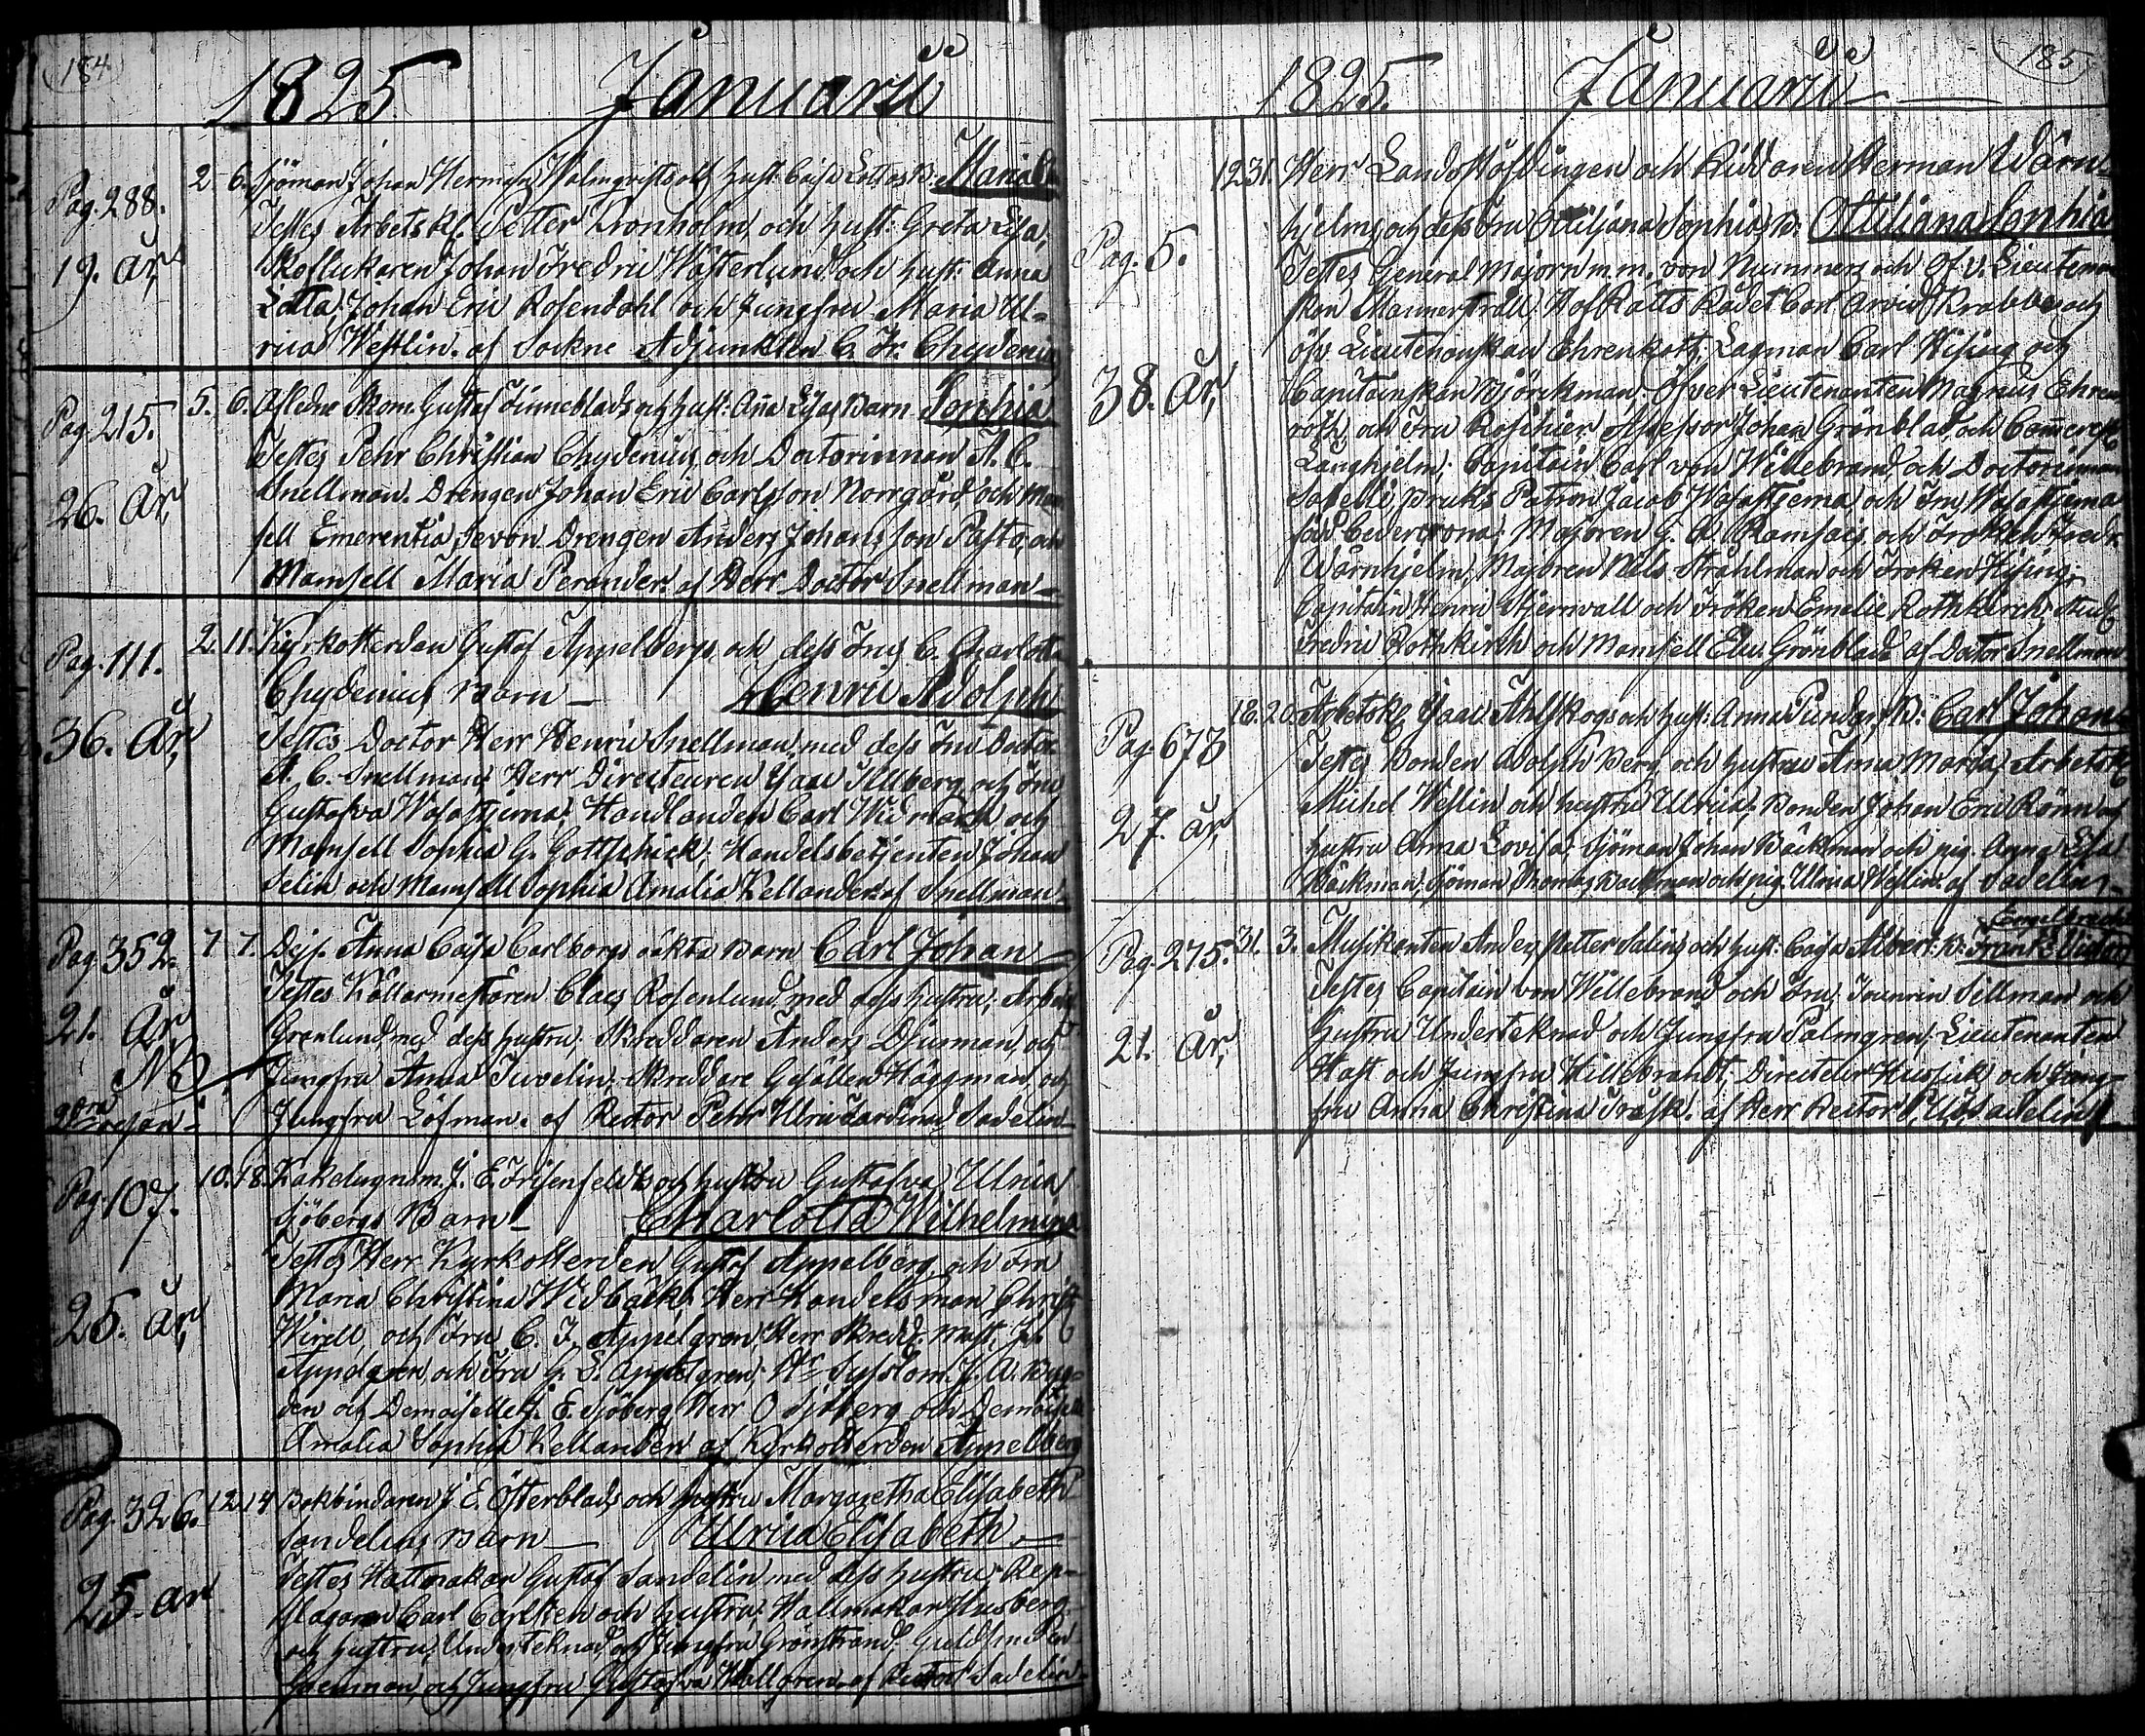 184
1825. Januarii
Pag. 288.
19. År,
2. 6. Sjöman Johan Herman Malmqvists och hust: Cajsa Lottas B: Maria
Testes Arbetsk. Petter Kronholm, och hust: Greta Lisa,
Johan Fredric Wästerlund och hust: Anna
Lotta; Johan Eric Rosendahl och Jungfru Maria Ul=
rica Westlin. af Sockne Adjunkten C. Fr. Chydenius
Pag. 215.
26. År,
5. 6. Afsked Skom. Gustaf Finneblads och hust: Aña Lisas Barn Sophia
Testes Pehr Christian Chydenius, och Doctorinnan A. C.
Snellman. Drengen Johan Eric Carlsson Norrgård och Mam
sell Emerentia Sevón Drengen Anders Johansson Pasto, och
Mamsell Maria Perander. af Herr Doctor Snellman
Pag. 111.
36. År,
2. 11. Kyrkoherden Gustaf Appelbergs, och dess Frus C. Charlotta
Chydenius Barn Henric Adolph
Testes Doctor Herr Henric Snellman, med dess Fru Doctor
A. C. Snellman; Herr Directeuren Isaac Tillberg och Fru
Gustafva Wasastjerna; Handlanden Carl Widmarck och
Mamsell Sophia G. Gottschick; Handelsbetjenten Johan
Selin och Mamsell Sophia Amalia Kellander. af Snellman.
Pag. 352.
21. År,
NB
7 7. Dejs. Anna Cajsa Carlborgs oäkta Barn Carl Johan
Testes Källarmestaren Claes Rosenlund, med dess hustru; Arbetsk
Grönlund, med dess hustru; Skreddaren Anders Djurman, och
Jungfru Anna Juvelin; Skreddare Gesällen Häggman, och
Jungfru Löfman. af Rector Pehr Ulric Ferdinand Sadelin
Pag. 107.
25. År,
10. 18. Kakelugnsm. J. E. Frisenfeldts och hustru Gustafva Ulrica
Sjöbergs Barn Charlotta Wilhelmina
Testes Herr Kyrkoherden Gustaf Appelberg och Fru
Maria Christina Widbäck; Herr Handelsman Christ
Wirell, och Fru C. F. Appelgren; Herr Skredd. Mäst. J.
Appelgren, och Fru G. S. Appelgren; Hr Sysslom. J. A.
den och Demoiselle J. E. Sjöberg Herr O Sjöberg och Demoiselle
Amalia Sophia Kellander. af Kyrkoherden Appelberg
Pag. 326.
25. år
12. 14 Bokbindaren J. E. Österblads och hustru Margaretha Elisabeth
Sandelins Barn Ulrica Elisabeth
Testes Hattmakar Gustaf Sandelin med dess hustru; Rep=
slagaren Carl Carlsten och hustru; Hattmakar Husberg
och hustru; Underteknad, och Jungfru Grönstrand. Guldsmeden
och Jungfru Gustafva Hallgren. af Rector Sadelin
185
1825. Januarii
Pag. 5.
38. År,
12 31. Herr Landshöfdingen och Riddaren Herman Wärn=
hjelms, och dess Fru Ottiljana Sophias B: Ottiliana Sophia
Testes General Majorn m.m. von Nummers och Öfv. Lieutenan
skan Mannerstråle; HofRätts Rådet Carl Arvid Krabbe och
Öfv. Lieutenanskan Ehrenkott; Lagman Carl Hising och
Capitainskan Björckman; Öfver Lieutenanten Magnus Ehren
roth, och Fru Rosihier, Assessor Johan Grönblad, och
Långhjelm; Capitain Carl von Willebrand, och Doctorinnan
Sabelli; Bruks Patron Jacob Wasastjerna, och Fru Wasastjerna
född Cedercrona; Majoren G. A Ramsay, och Fröken Fredr:
Wärnhjelm; Majoren Nils Stråhlman och Fröken Hising
Capitain Henric Stjernvall och Fröken Emelie Rothkirch; Stud:
Fredric Rothkirch och Mamsell Elis. Grönblad af Doctor Snellman
Pag. 678
27. år,
18. 20. Arbetsk. Isaac Ahlskogs och hust: Anna Pundars B: Carl Johan
Testes Bonden Adolph Berg, och hustru Anna Maria; Arbetsk
Michel Westlin och hustru Ulrica; Bonden Johan Eric Rönn och
hustru Anna Lovisa; Sjöman Johan Bäckman och pig. Anna Lisa
Bäckman; Sjöman Thomas Backman och pig. Ulrica Westlin. af Sadelin
Pag. 275.
21. År,
31. 3. Musikanten Anders Petter Salins och hust: Cajsa Albert. B: Frants Victor
Engelbrecht
Testes Capitain von Willebrand och Fru; Sillman och
hustru Underteknad och Jungfru Palmgren; Lieutenanten
Hast och Jungfru Hillebrandt; Directeur Hussjick och Jung=
fru Anna Christina Träsk. af Herr Rector P. U. F. Sadelin